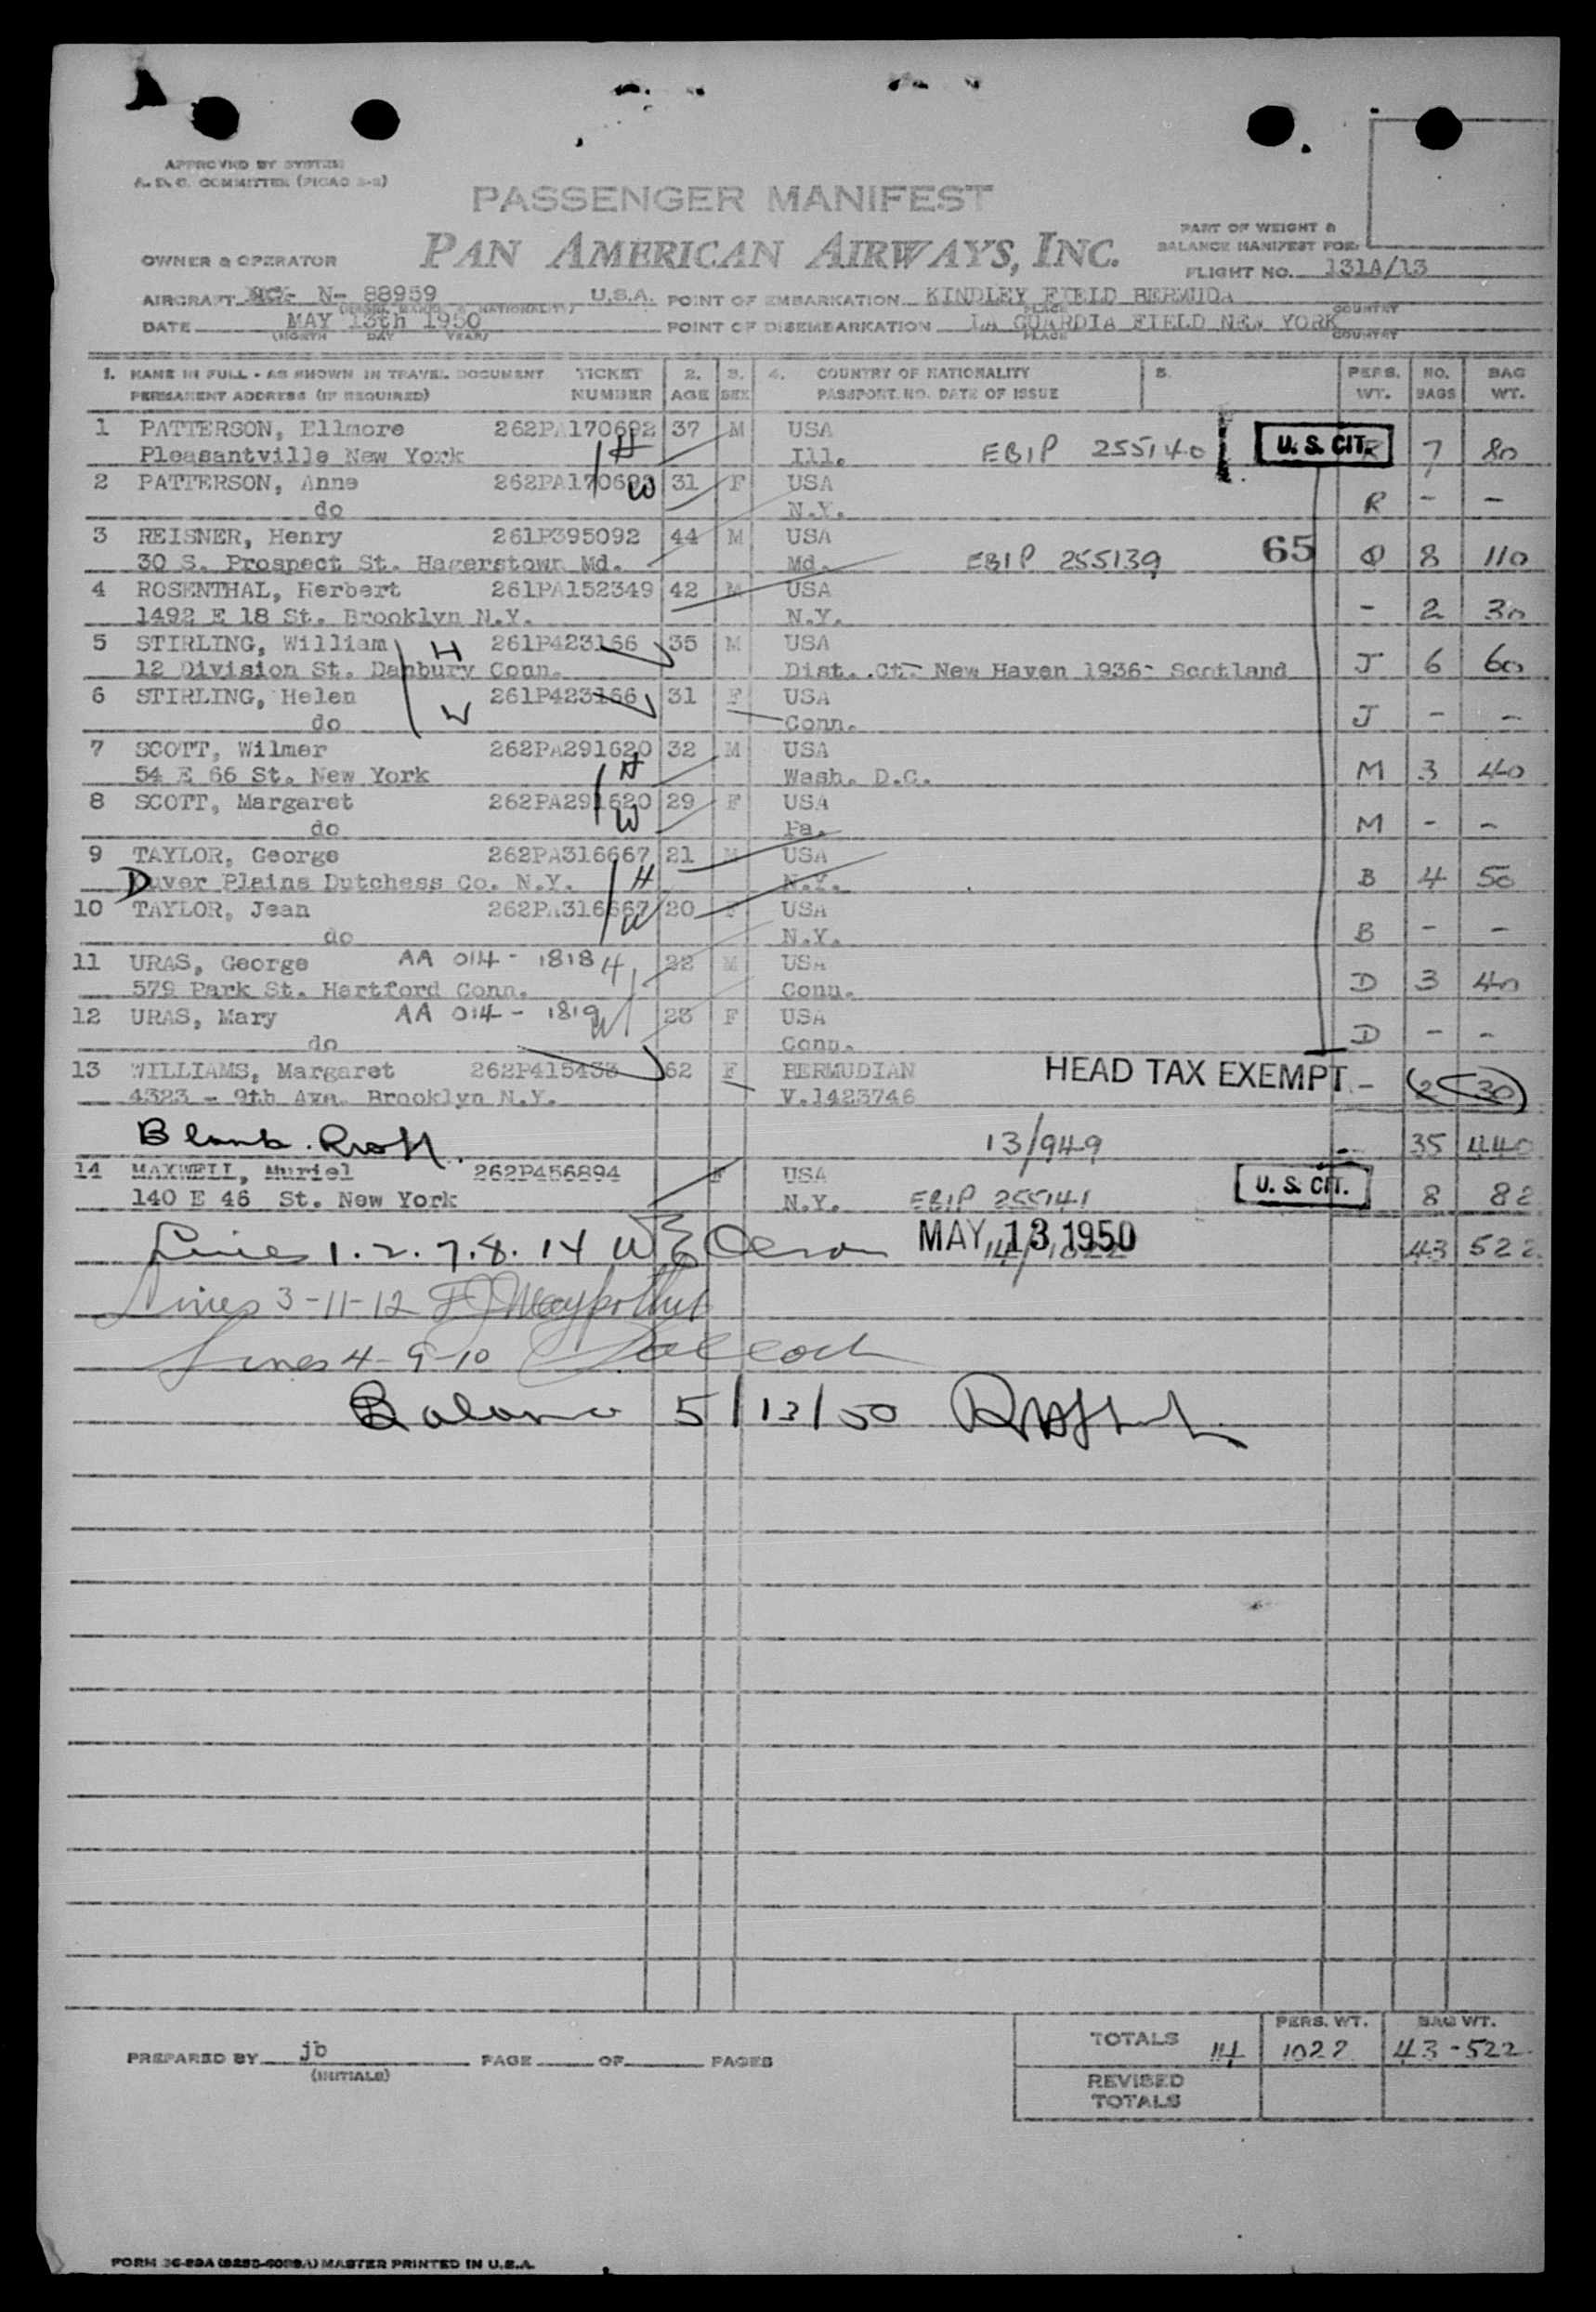 APPROVED BY SYSTEM
A. D. C. COMMITTEE (PICAO 2-2)
PASSENGER MANIFEST
PAN AMERICAN AIRWAYS, INC.
PART OF WEIGHT &
BALANCE MANIFEST FOR:
OWNER & OPERATOR
FLIGHT NO. 131A/13
AIRCRAFT N- 88959 U.S.A. POINT OF EMBARKATION KINDLEY FIELD BERMUDA
PLACE COUNTRY
DATE MAY 13th 1950 POINT OF DISEMBARKATION LA GUARDIA FIELD NEW YORK
(MONTH DAY YEAR) PLACE COUNTRY
1. NAME IN FULL - AS SHOWN IN TRAVEL DOCUMENT TICKET 2. 3. 4. COUNTRY OF NATIONALITY 5. PERS. NO. BAG
PERMANENT ADDRESS (IF REQUIRED) NUMBER AGE SEX PASSPORT NO. DATE OF ISSUE WT. BAGS WT.
1 PATTERSON, Ellmore 262PA170692 37 M USA U. S. CIT.
Pleasantville New York H Ill. EBIP 255140 R 7 80
2 PATTERSON, Anne 262PA170692 31 F USA
do W N.Y. R - -
3 REISNER, Henry 261P395092 44 M USA 65
30 S. Prospect St. Hagerstown Md. Md. EBIP 255139 8 110
4 ROSENTHAL, Herbert 261PA152349 42 M USA
1492 E 18 St. Brooklyn N.Y. N.Y. - 2 30
5 STIRLING, William H 261P423166 35 M USA
12 Division St. Danbury Conn. Dist. Ct- New Haven 1936- Scotland J 6 60
6 STIRLING, Helen 261P423166 31 F USA
do W Conn. J - -
7 SCOTT, Wilmer 262PA291620 32 M USA
54 E 66 St. New York H Wash. D.C. M 3 40
8 SCOTT, Margaret 262PA291620 29 F USA
do W Pa. M - -
9 TAYLOR, George 262PA316667 21 M USA
Dover Plains Dutchess Co. N.Y. H N.Y. B 4 50
10 TAYLOR, Jean 262PA316667 20 F USA
do W N.Y. B - -
11 URAS, George AA 014 - 1818 H 22 M USA
579 Park St. Hartford Conn. Conn. D 3 40
12 URAS, Mary AA 014 - 1819 W 23 F USA
do Conn. D - -
13 WILLIAMS, Margaret 262P415433 62 F BERMUDIAN HEAD TAX EXEMPT - 2 30
4323 - 9th Ave. Brooklyn N.Y. V.1423746
13/949 - 35 440
14 MAXWELL, Muriel 262P456894 F USA U. S. CIT.
140 E 46 St. New York N.Y. EBIP 255141 8 82
Lines 1. 2. 7. 8. 14 MAY 13 1950 14/1022 43 522
Lines 3-11-12
Lines 4-9-10
Balance 5/13/50
PREPARED BY jb PAGE OF PAGES
(INITIALS)
PERS. WT. BAG WT.
TOTALS 14 1022 43-522
REVISED
TOTALS
MASTER PRINTED IN U.S.A.